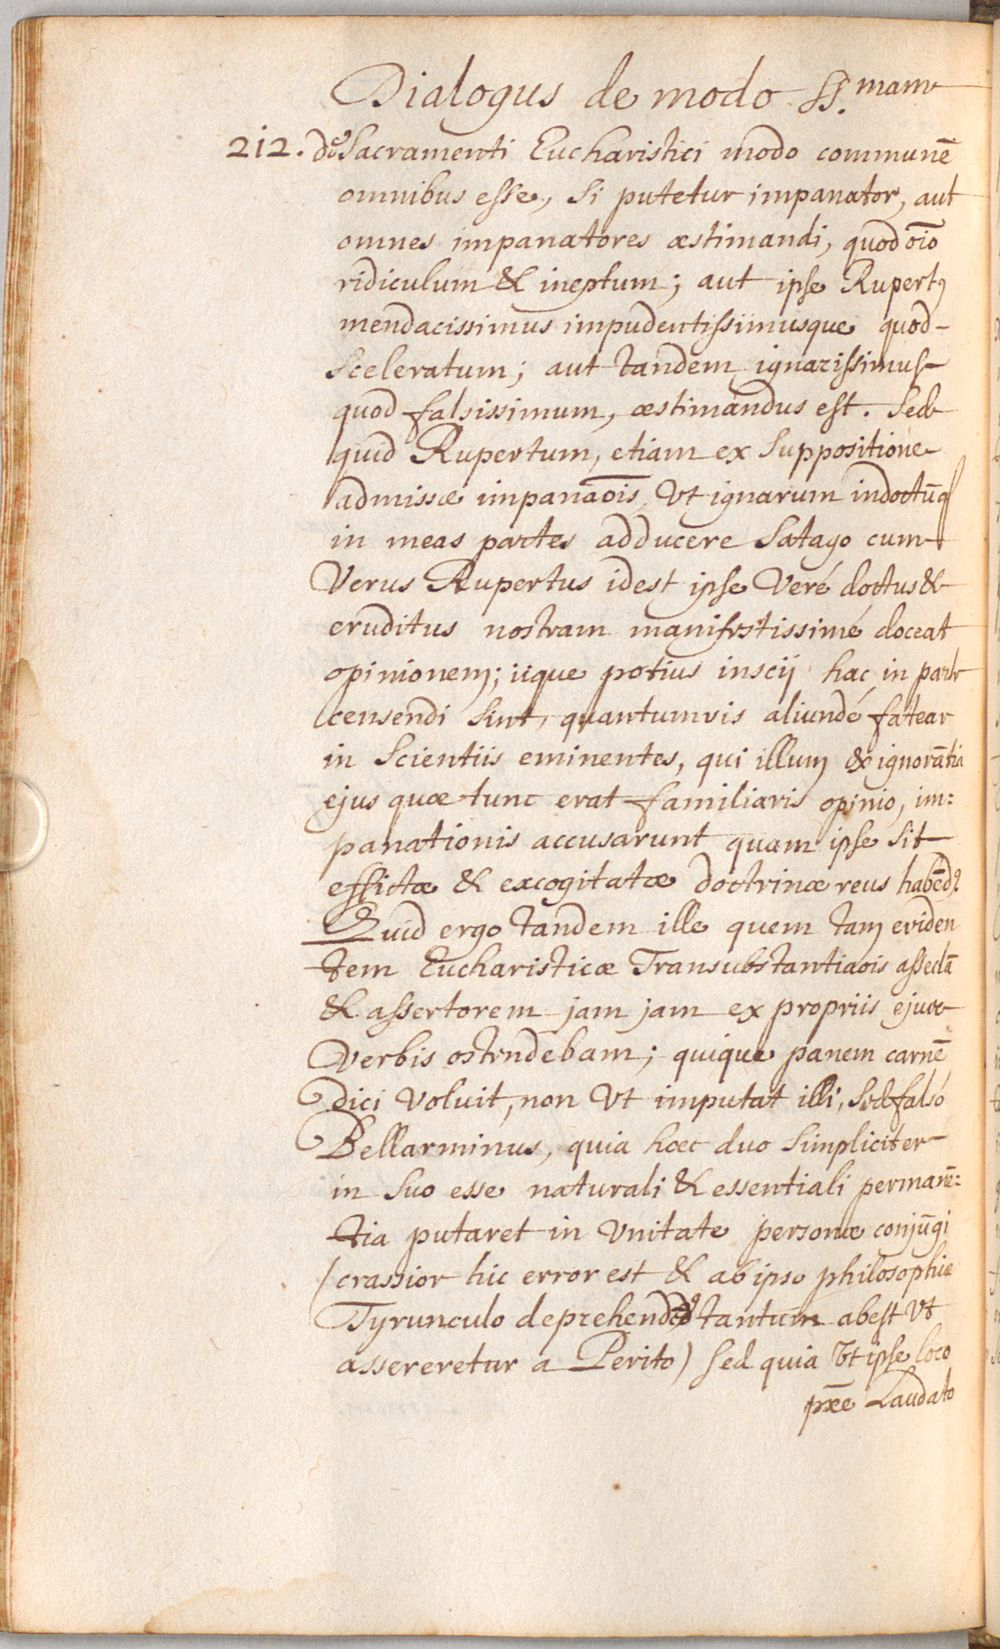 Dialogus de modo SS.mam
212. de Sacramenti Eucharistici modo communē
omnibus esse, si putetur impanator, aut
omnes impanatores æstimandi, quod oīo
ridiculum & ineptum; aut ipse Rupertꝰ
mendacissimus impudentissimusque quod
sceleratum; aut tandem ignarissimus
quod falsissimum, æstimandus est. Sed
quid Rupertum, etiam ex suppositione
admissæ impanaōis, Vt ignarum indoctūq
in meas partes adducere satago cum
Verus Rupertus idest ipse Veré doctus &
eruditus nostram manifestissimé doceat
opinionem; iique potius inscij hac in parte
censendi sint, quantumvis aliundé fatear
in Scientiis eminentes, qui illum ex ignorātia
ejus quæ tunc erat familiaris opinio, im:
panationis accusarunt quam ipse sit
effictæ & excogitatæ doctrinæ reus habēd?
Quid ergo tandem ille quem tam eviden
tem Eucharisticæ Transubstantiaōis asseclā
& assertorem jam jam ex propriis ejus
Verbis ostendebam; quique panem carnē
dici Voluit, non Vt imputat illi, sed falsó
Bellarminus, quia hæc duo simpliciter
in suo esse naturali & essentiali permanē:
tia putaret in Vnitate personæ conjūgi
(crassior hic error est & ab ipso philosophiæ
Tyrunculo deprehended tantum abest Vt
assereretur a Perito) sed quia Vt ipse loco
præe Laudato